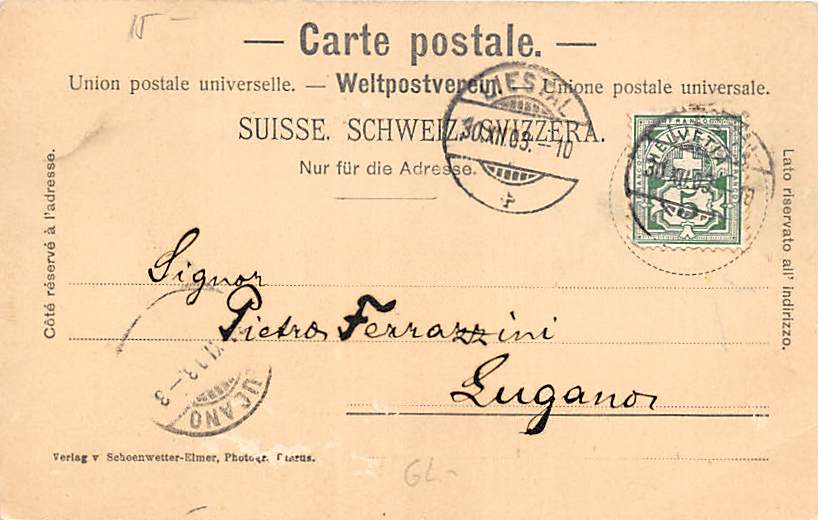 — Carte postale. —
Union postale universelle. — Weltpostverein. — Unione postale universale.
SUISSE. SCHWEIZ. SVIZZERA.
Nur für die Adresse.
Côté réservé à l'adresse.
Lato riservato all' indirizzo.
LIESTAL
30.XII.03.–10
FRANCO
HELVETIA
5
30.XII.03
Signor
Pietro Ferrazzini
Lugano
LUGANO
Verlag v Schoenwetter-Elmer, Photogr. Glarus.
GL-